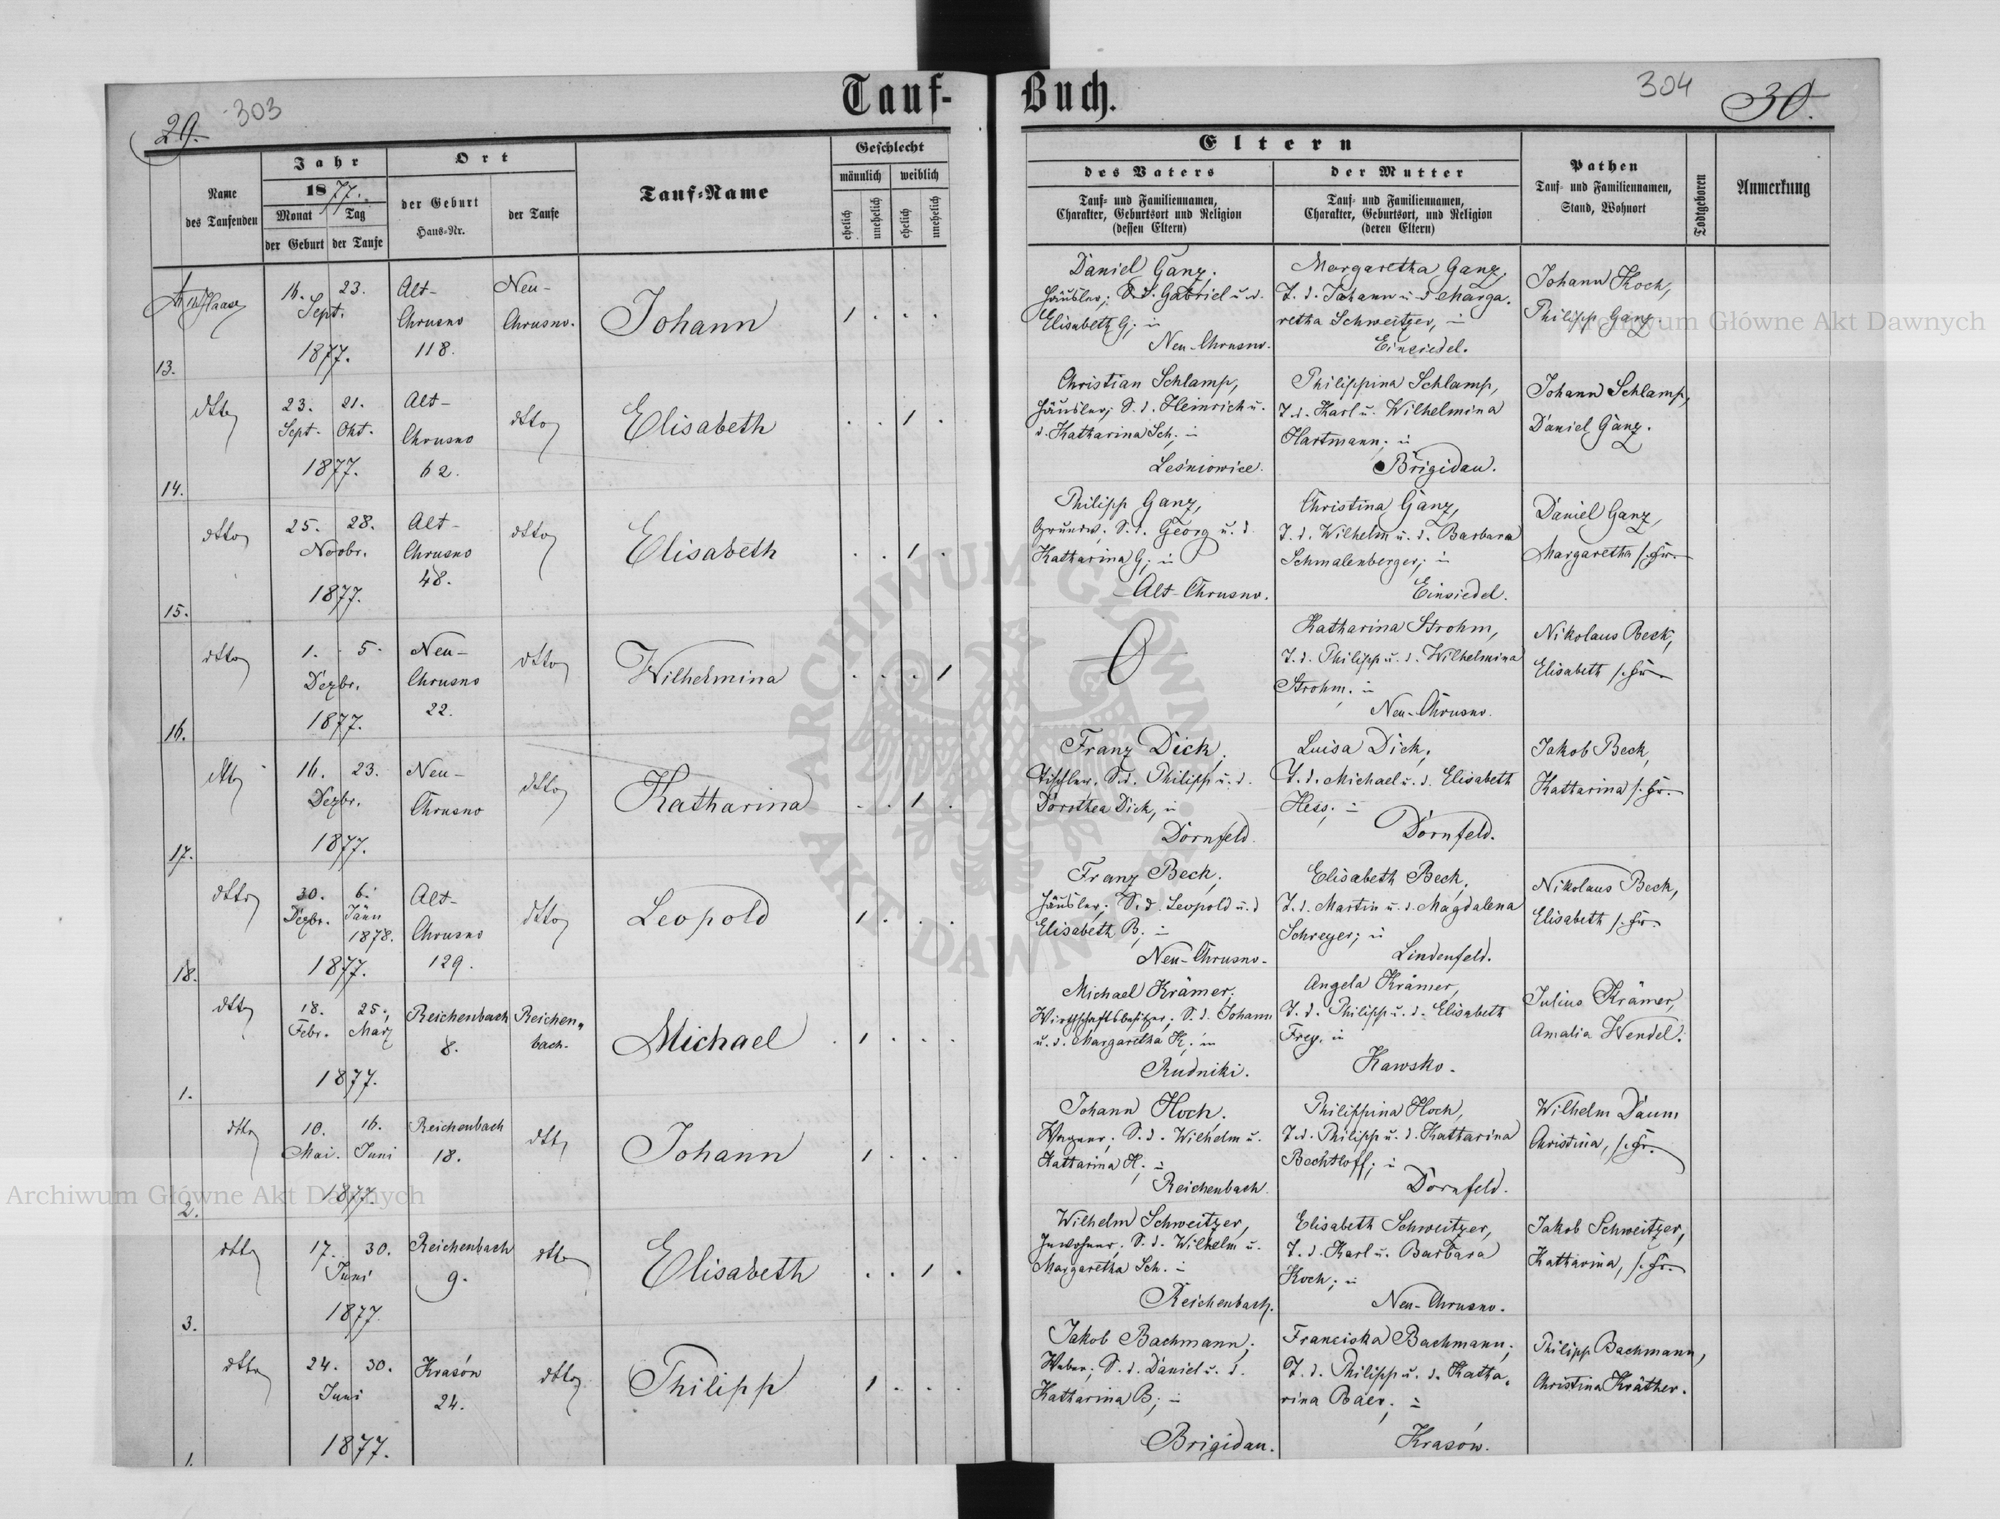 Tauf-
Buch.
29.
303
304
30.
Name
des Taufenden
Jahr
1877.
Monat
Tag
der Geburt
der Taufe
Ort
der Geburt
Haus-Nr.
der Taufe
Tauf-Name
Geschlecht
männlich
weiblich
ehelich
unehelich
ehelich
unehelich
Eltern
des Vaters
Tauf- und Familiennamen,
Charakter, Geburtsort und Religion
(dessen Eltern)
der Mutter
Tauf- und Familiennamen,
Charakter, Geburtsort, und Religion
(deren Eltern)
Pathen
Tauf- und Familiennamen,
Stand, Wohnort
Todtgeboren
Anmerkung
13.
Haase
16. 23.
Sept.
1877.
Alt-
Chrusno
118.
Neu-
Chrusno.
Johann
1 . . .
Daniel Ganz.
Häusler; S. d. Gabriel u. d.
Elisabeth G; in
Neu-Chrusno.
Margaretha Ganz,
T. d. Johann u. d. Marga-
retha Schweitzer, in
Einsiedel.
Johann Koch,
Philipp Ganz.
14.
dtto
23. 21.
Sept. Okt.
1877.
Alt-
Chrusno
62.
dtto
Elisabeth
. . 1 .
Christian Schlamp,
Häusler; S. d. Heinrich u.
d. Katharina Sch. in
Leśniowice.
Philippina Schlamp,
T. d. Karl u. Wilhelmina
Hartmann; in
Brigidau.
Johann Schlamp,
Daniel Ganz.
15.
dtto
25. 28.
Novbr.
1877.
Alt-
Chrusno
48.
dtto
Elisabeth
. . 1 .
Philipp Ganz,
Grundw. S. d. Georg u. d.
Katharina G; in
Alt-Chrusno.
Christina Ganz,
T. d. Wilhelm u. d. Barbara
Schmalenberger; in
Einsiedel.
Daniel Ganz,
Margaretha s. Fr.
16.
dtto
1. 5.
Dezbr.
1877.
Neu-
Chrusno
22.
dtto
Wilhelmina
. . . 1
0
Katharina Strohm,
T. d. Philipp u. d. Wilhelmina
Strohm; in
Neu-Chrusno.
Nikolaus Beck,
Elisabeth s. Fr.
17.
dtto
16. 23.
Dezbr.
1877.
Neu-
Chrusno
dtto
Katharina
. . 1 .
Franz Dick,
Tischler, S. d. Philipp u. d.
Dorothea Dick, in
Dornfeld.
Luisa Dick,
T. d. Michael u. d. Elisabeth
Hess; in
Dornfeld.
Jakob Beck,
Katharina s. Fr.
18.
dtto
30. 6.
Dezbr. Jänn
1878.
1877.
Alt-
Chrusno
129.
dtto
Leopold
1 . . .
Franz Beck,
Häusler; S. d. Leopold u. d.
Elisabeth B; in
Neu-Chrusno.
Elisabeth Beck,
T. d. Martin u. d. Magdalena
Schreyer; in
Lindenfeld.
Nikolaus Beck,
Elisabeth s. Fr.
1.
dtto
18. 25.
Febr. März
1877.
Reichenbach
8.
Reichen-
bach.
Michael
1 . . .
Michael Krämer,
Wirthschaftsbesitzer; S. d. Johann
u. d. Margaretha K. in
Rudniki.
Angela Krämer,
T. d. Philipp u. d. Elisabeth
Frey. in
Kawsko.
Julius Krämer,
Amalia Wendel.
2.
dtto
10. 16.
Mai. Juni
1877.
Reichenbach
18.
dtto
Johann
1 . . .
Johann Hoch.
Wagner; S. d. Wilhelm u.
Katharina H; in
Reichenbach.
Philippina Hoch,
T. d. Philipp u. d. Katharina
Bechtloff; in
Dornfeld.
Wilhelm Daum
Christina, s. Fr.
3.
dtto
17. 30.
Juni
1877.
Reichenbach
9.
dtto
Elisabeth
. . 1 .
Wilhelm Schweitzer,
Inwohner, S. d. Wilhelm u.
Margaretha Sch. in
Reichenbach.
Elisabeth Schweitzer,
T. d. Karl u. Barbara
Koch; in
Neu-Chrusno.
Jakob Schweitzer,
Katharina, s. Fr.
1.
dtto
24. 30.
Juni
1877.
Krasów
24.
dtto
Philipp
1 . . .
Jakob Bachmann;
Weber, S. d. Daniel u. d.
Katharina B; in
Brigidau.
Franciska Bachmann;
T. d. Philipp u. d. Katha-
rina Baer; in
Krasów.
Philipp Bachmann,
Christina Kräther.
Archiwum Główne Akt Dawnych
Archiwum Główne Akt Dawnych
ARCHIWUM GŁÓWNE AKT DAWNYCH